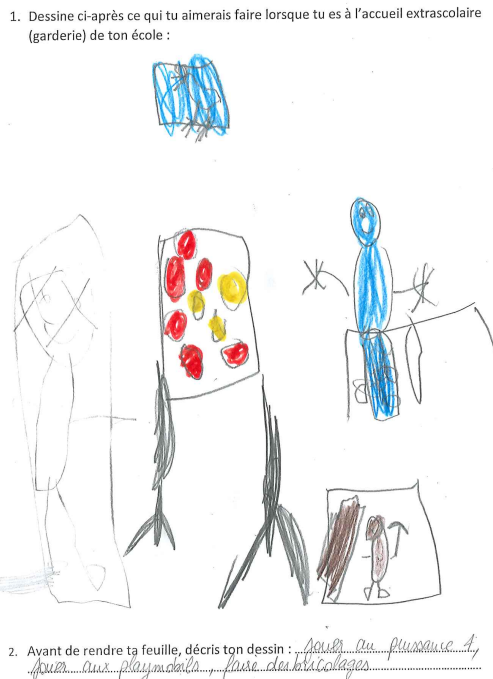 1. Dessine ci-après ce qui tu aimerais faire lorsque tu es à l'accueil extrascolaire
(garderie) de ton école :
2. Avant de rendre ta feuille, décris ton dessin : Jouer au puissance 4,
Jouer aux playmobils, faire des bricolages